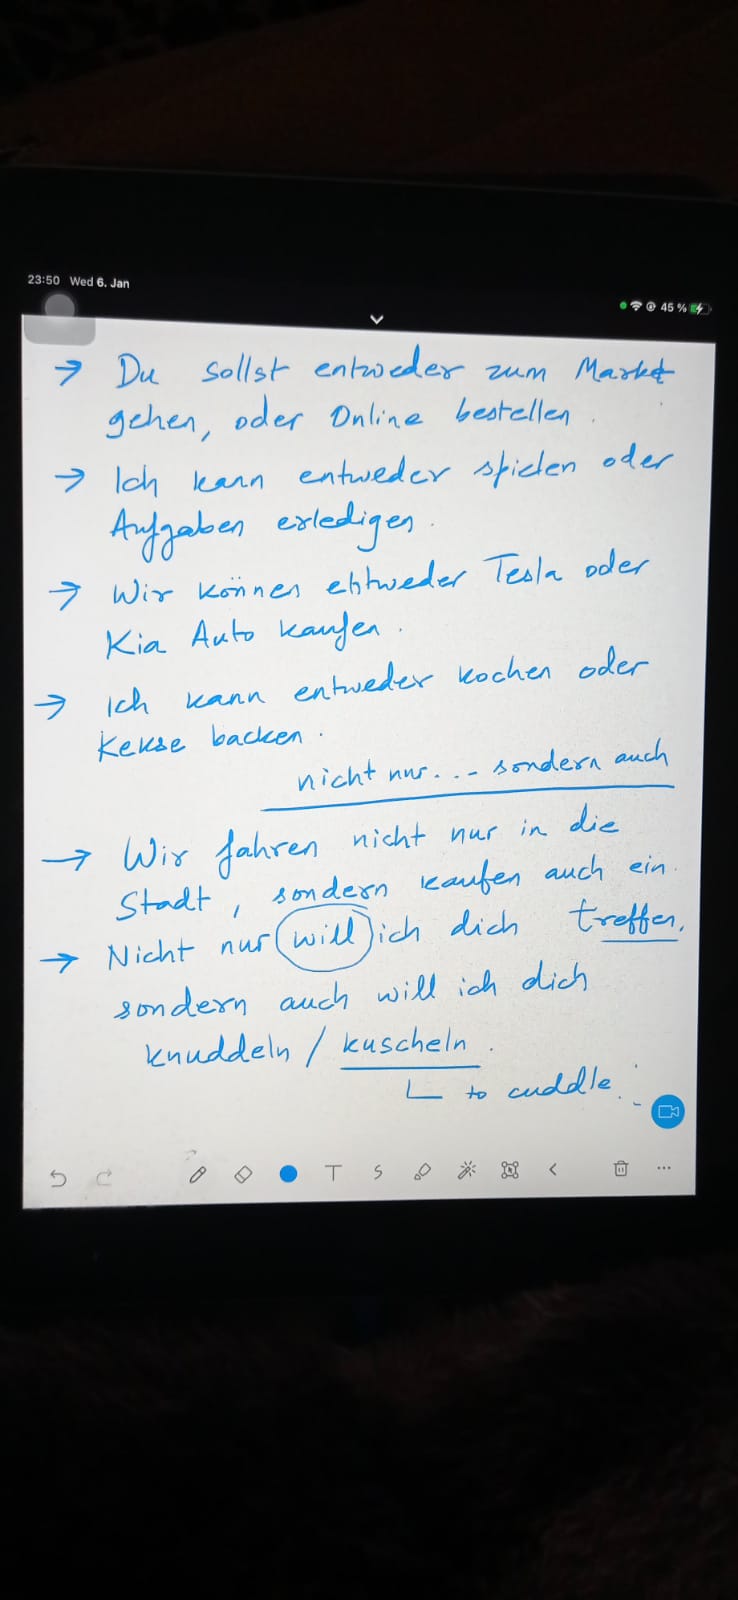 23:50 Wed 6. Jan
45 %
→ Du sollst entweder zum Markt
gehen, oder Online bestellen.
→ Ich kann entweder spielen oder
Aufgaben erledigen.
→ Wir können entweder Tesla oder
Kia Auto kaufen.
→ Ich kann entweder kochen oder
Kekse backen.
nicht nur... sondern auch
→ Wir fahren nicht nur in die
Stadt, sondern kaufen auch ein.
→ Nicht nur will ich dich treffen,
sondern auch will ich dich
knuddeln / kuscheln.
to cuddle.
T